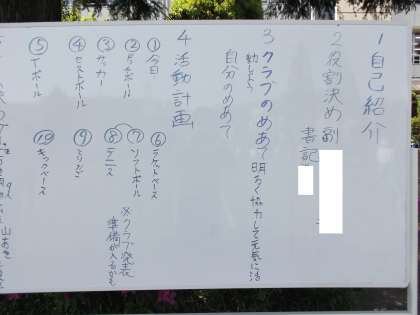 1 自己紹介
2 役割決め 副
書記
3 クラブのめあて 明るく協力して元気に活
動しよう
自分のめあて
4 活動計画
① 今日
②
③ サッカー
④
⑤ Tーボール
⑥ ラケットベース
⑦ ソフトボール
⑧ テニス
※クラブ発表
準備が入るかも
⑨
⑩ キックベース